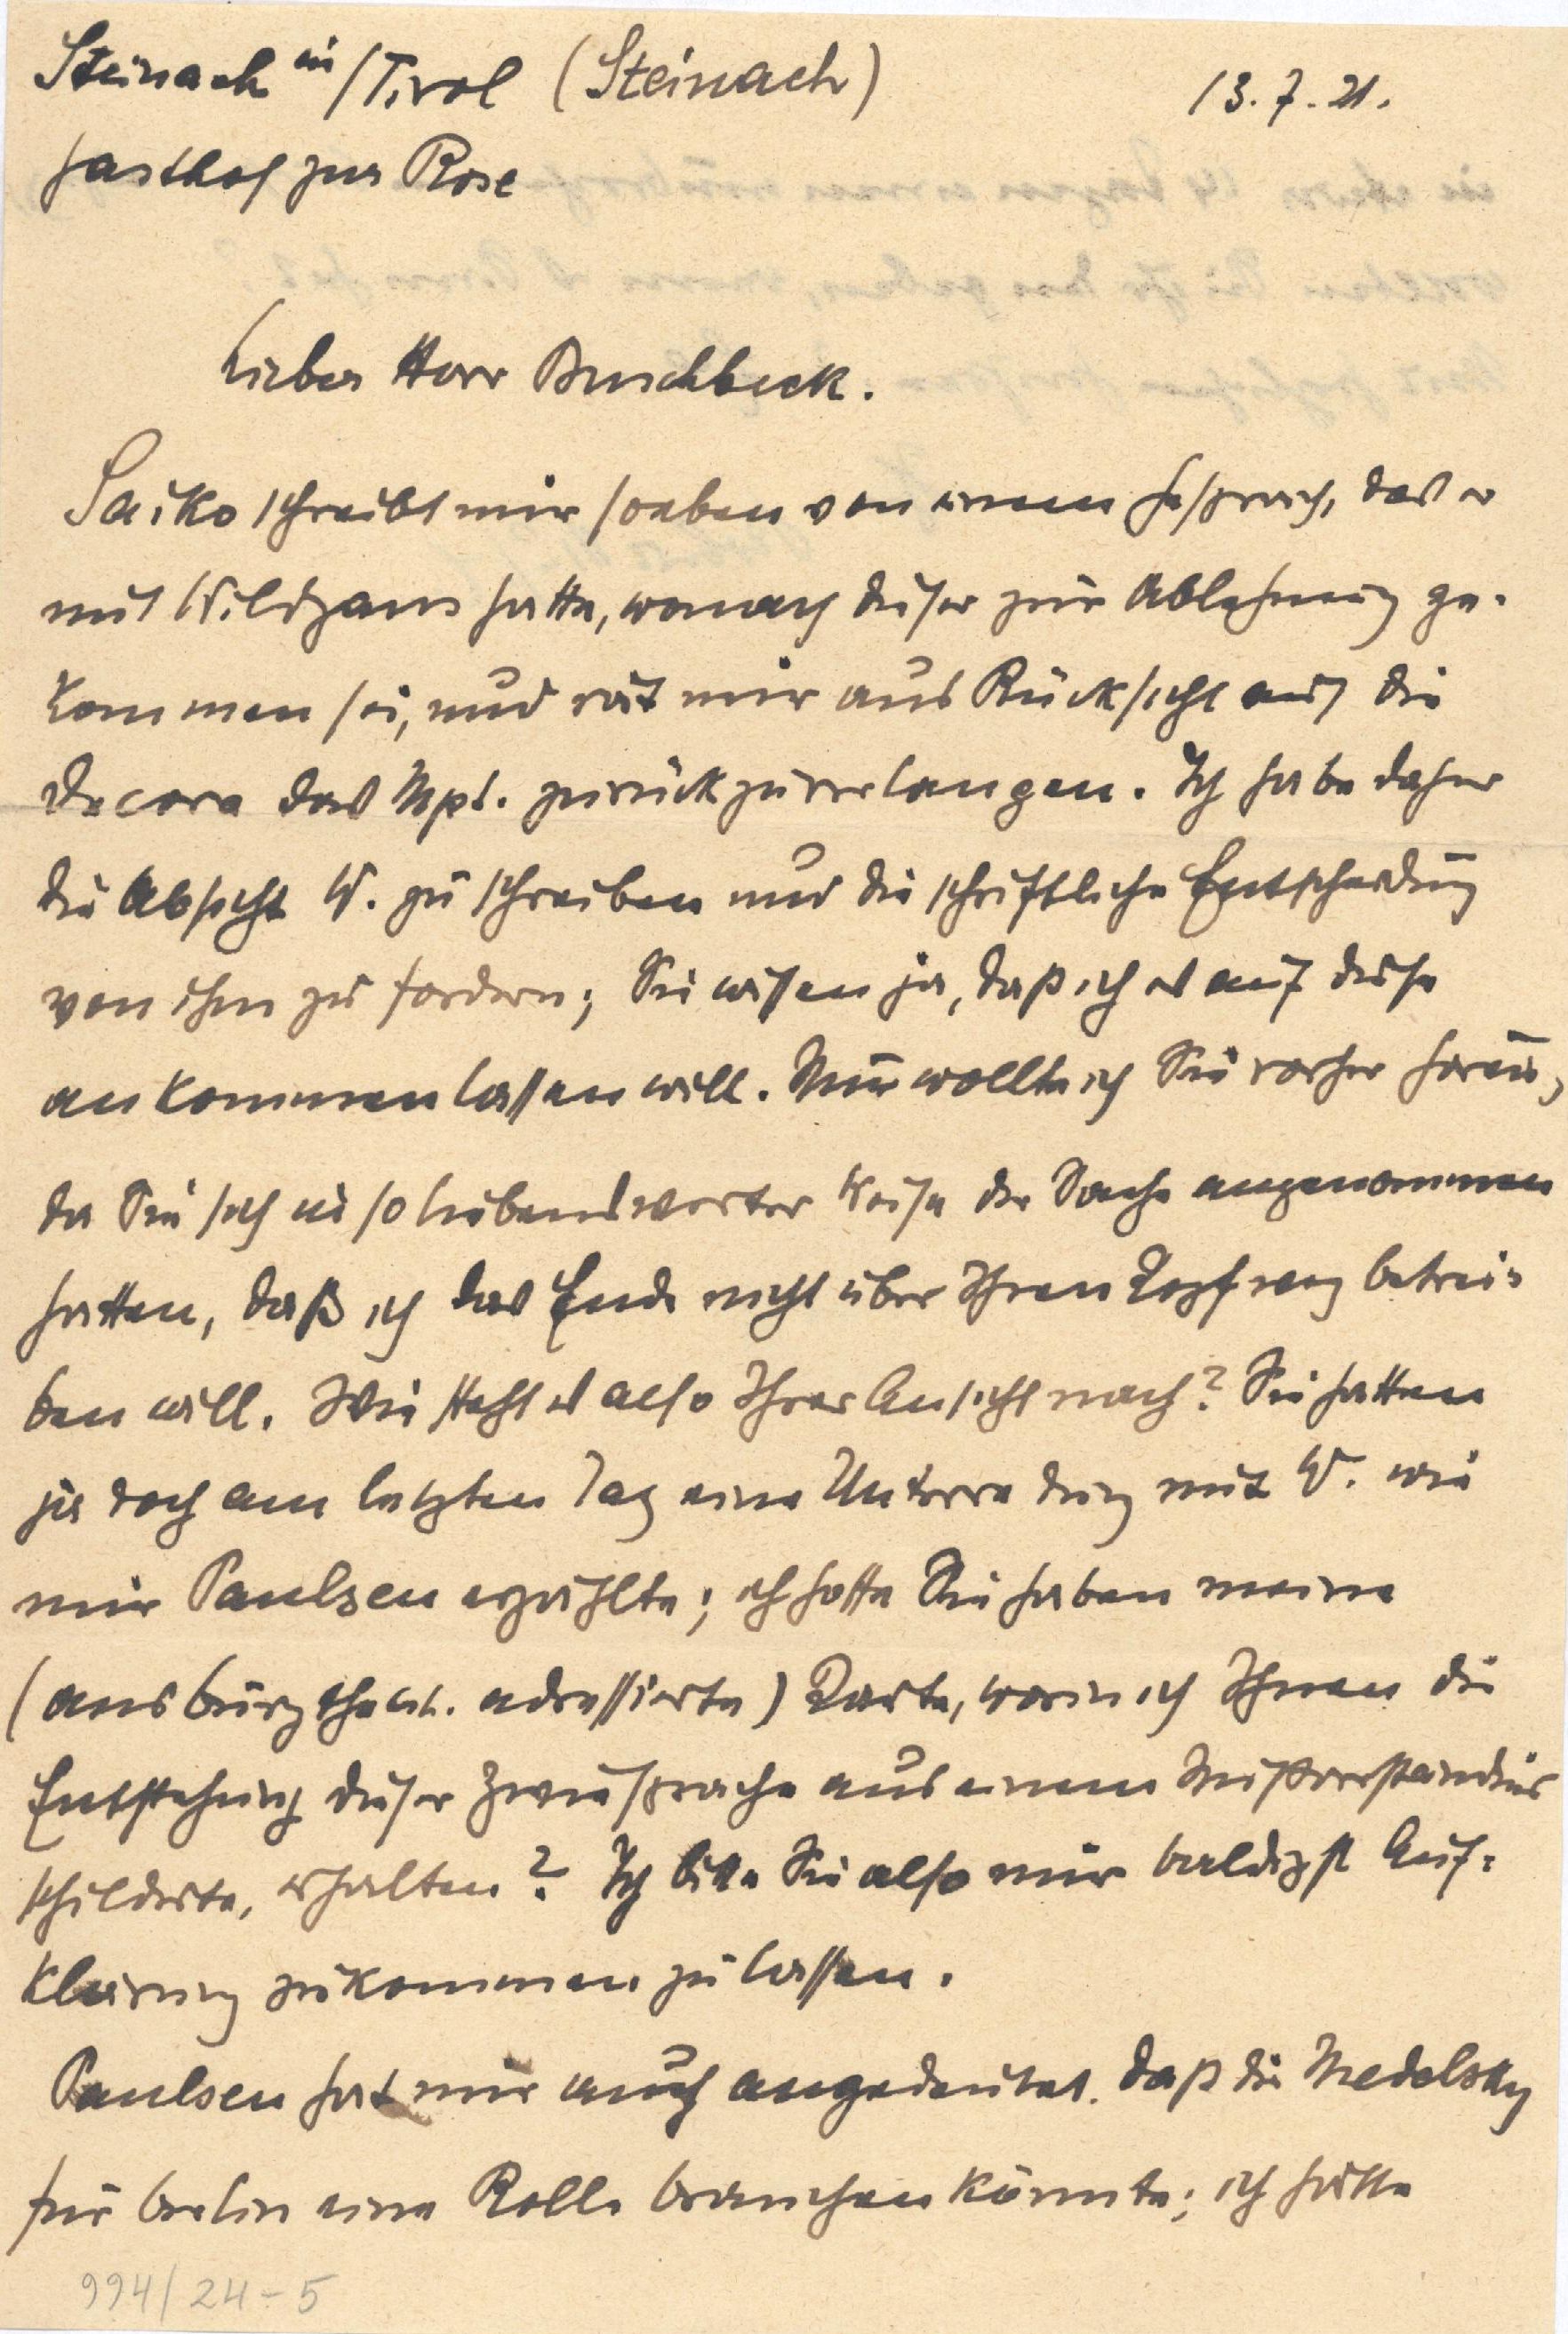 Steinach in/Tirol (Steinach) 13.7.21.
Gasthof zur Rose
Lieber Herr Buschbeck.
Saiko schreibt mir soeben von einem Gespräch, das er
mit Wildgans hatte, wonach dieser zur Ablehnung ge-
kommen sei, und rät mir aus Rücksicht auf die
Decora das Mpt. zurückzuverlangen. Ich habe daher
die Absicht W. zu schreiben und die schriftliche Entscheidung
von ihm zu fordern; Sie wissen ja, daß ich es auf diese
ankommen lassen will. Nur wollte ich Sie vorher hören,
da Sie sich in so liebenswerter Weise der Sache angenommen
hatten, daß ich das Ende nicht über Ihren Kopf weg betrei-
ben will. Wie steht es also Ihrer Ansicht nach? Sie hatten
ja doch am letzten Tag eine Unterredung mit W. wie
mir Paulsen erzählte; ich hoffe Sie haben meine
(ans Burgtheat. adressierte) Karte, worin ich Ihnen die
Entstehung dieser Zwiesprache aus einem Mißverständnis
schilderte, erhalten? Ich bitte Sie also mir baldigst Auf-
klärung zukommen zu lassen.
Paulsen hat mir auch angedeutet, daß die Medelsky
für Berlin eine Rolle brauchen könnte; ich hätte
994/24-5